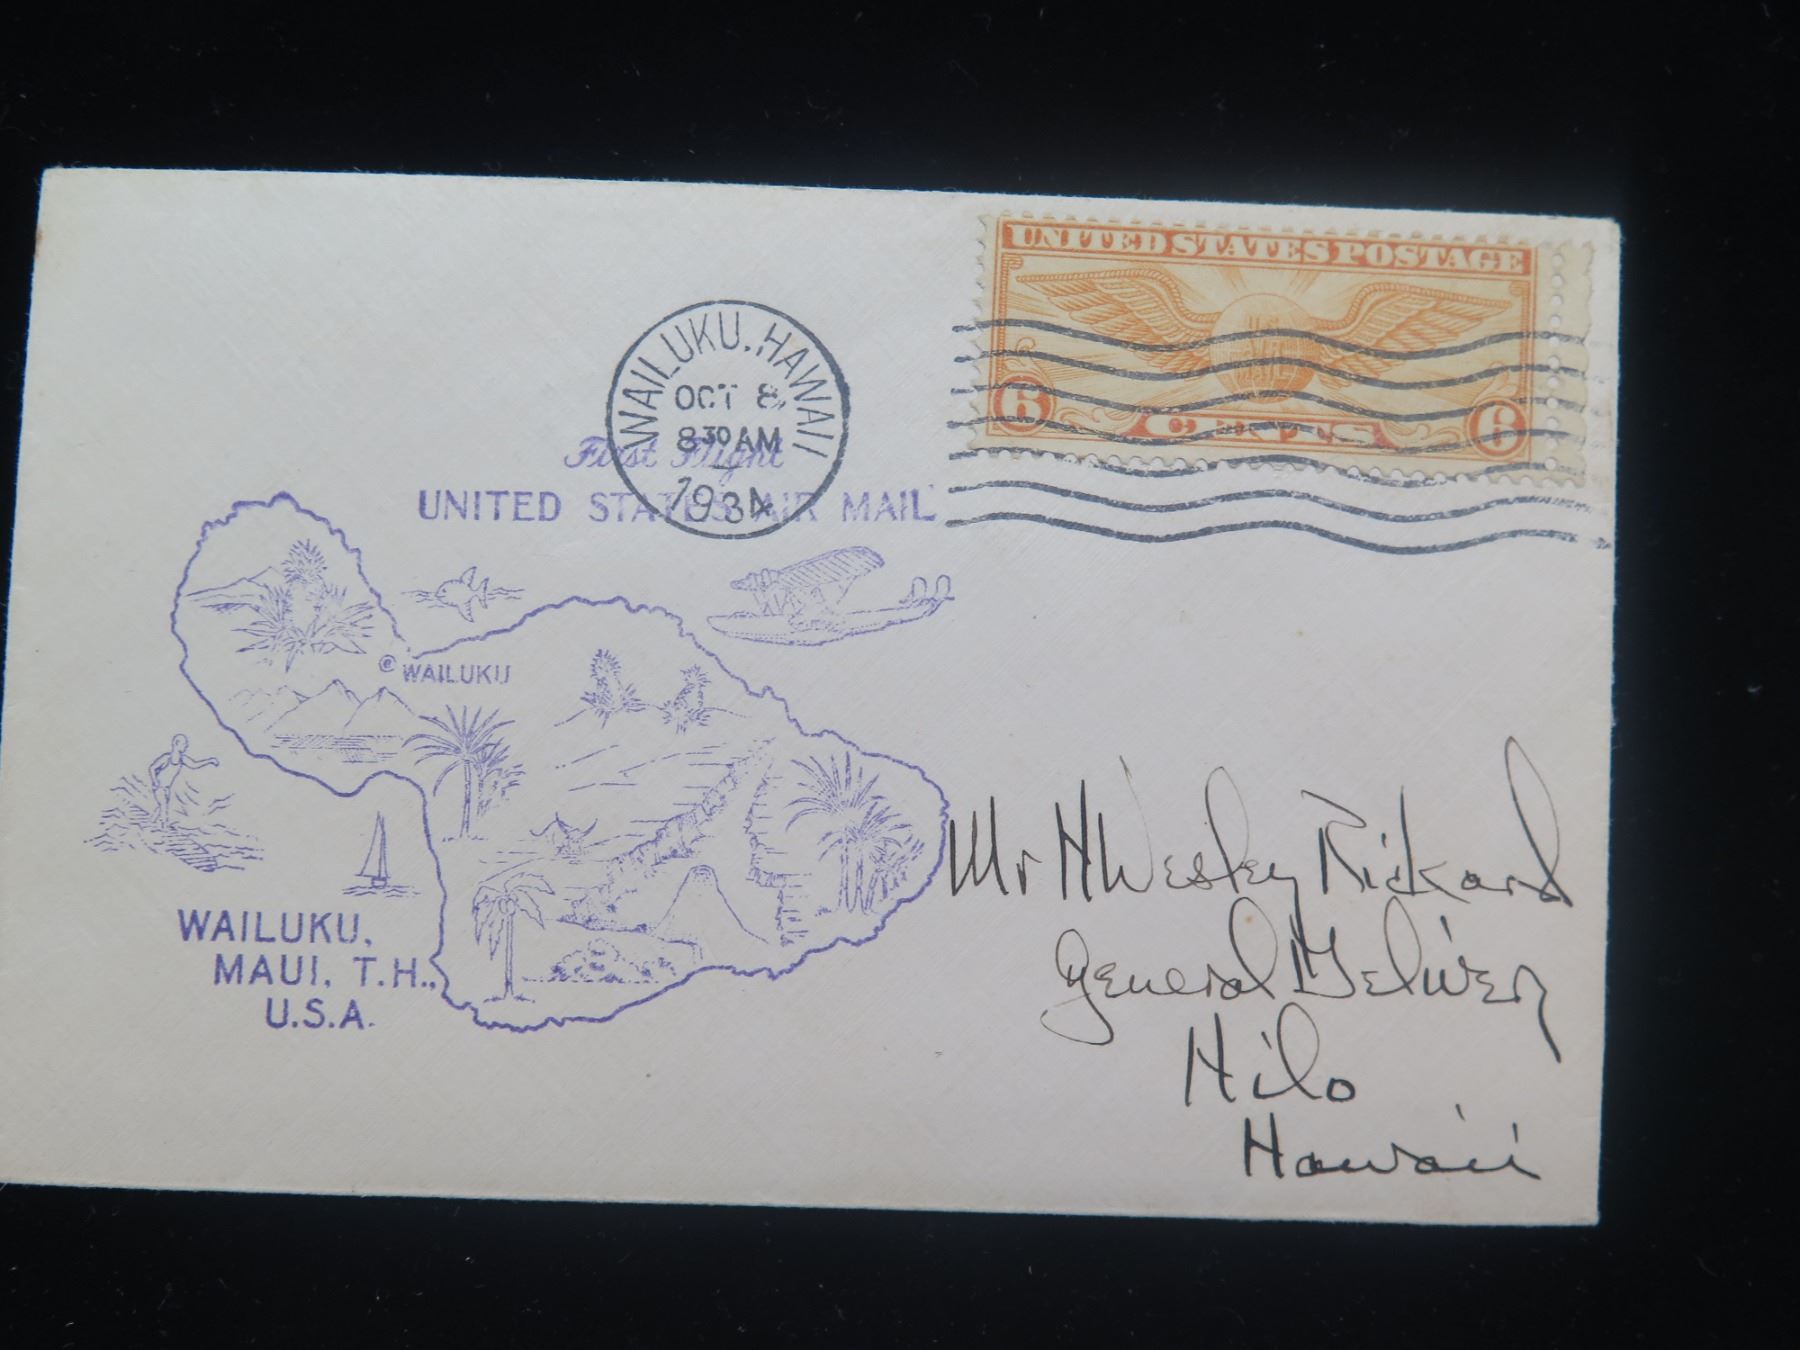 UNITED STATES POSTAGE
U.S.
MAIL
6 CENTS 6
WAILUKU, HAWAII
OCT 8
8 30 AM
1934
First Flight
UNITED STATES AIR MAIL
WAILUKU
WAILUKU,
MAUI, T.H.,
U.S.A.
Mr H Wesley Rickard
General Delivery
Hilo
Hawaii